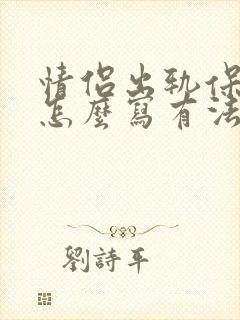 情侶出軌保
怎麼寫有法
劉詩平